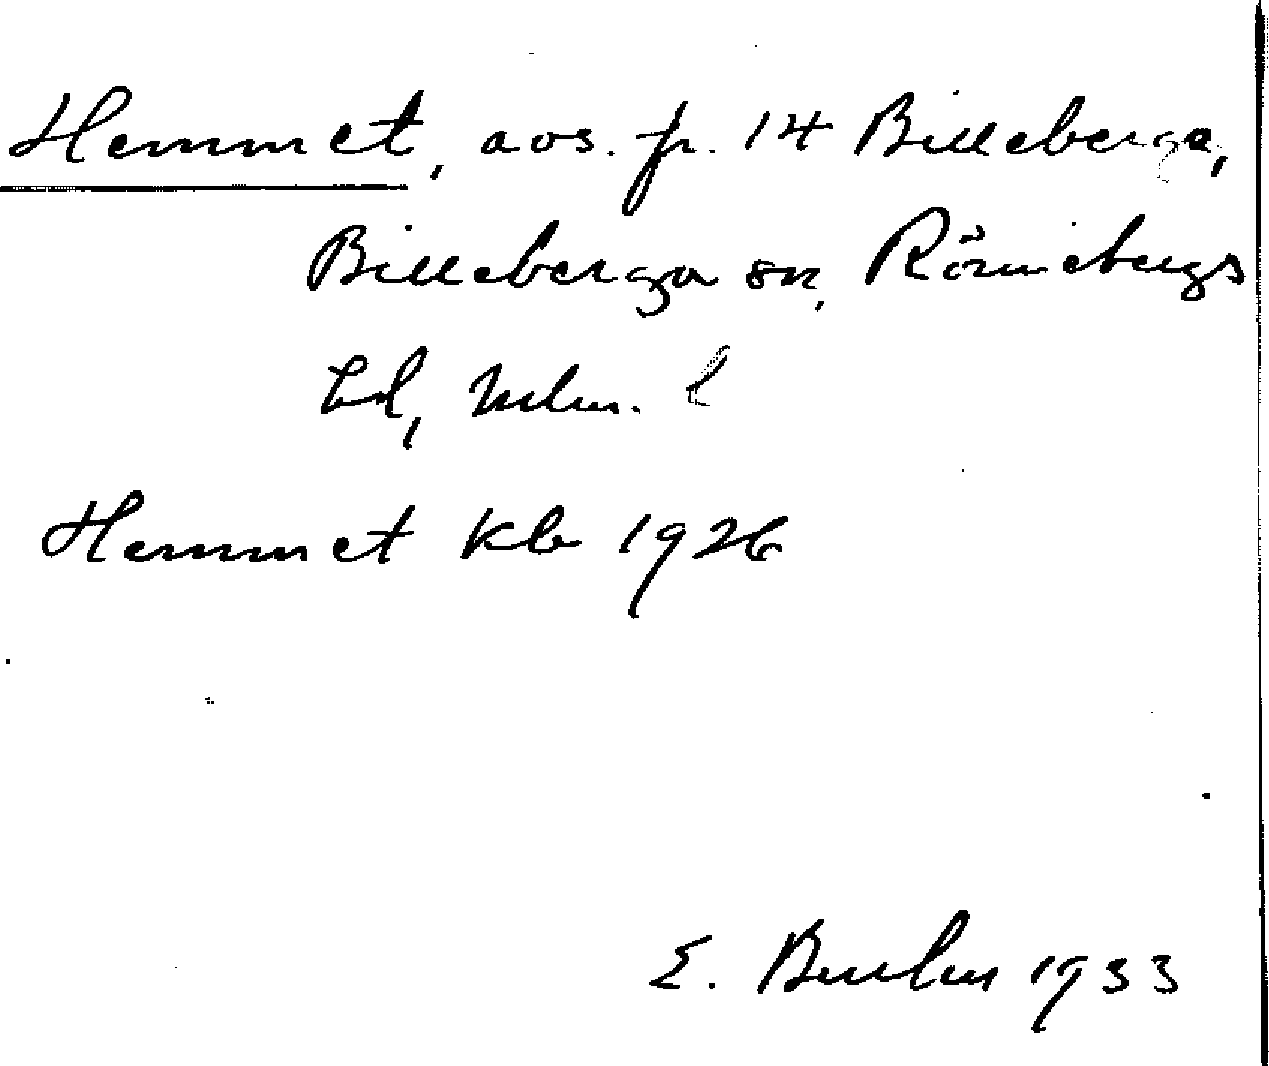 Hemmet, aos. fr. 14 Billeberga,
Billeberga sn, Rönnebergs
hd, Mlm. l
Hemmet Kb 1926
E. 1933